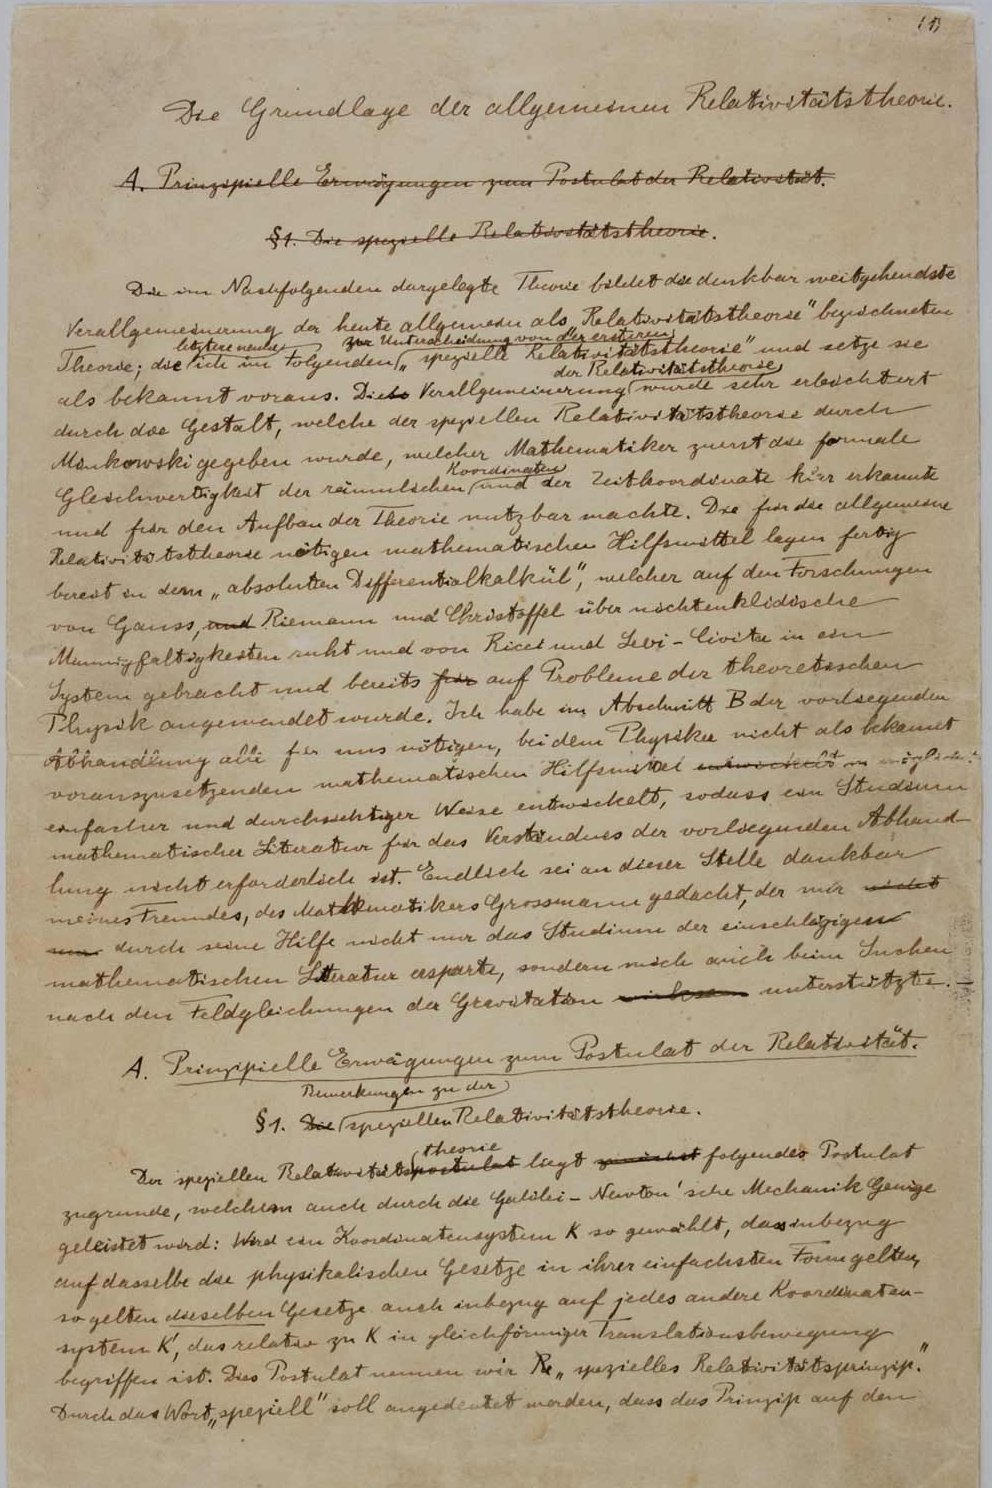 Die Grundlage der allgemeinen Relativitätstheorie.
A. Prinzipielle Erwägungen zum Postulat der Relativität.
§1. Die spezielle Relativitätstheorie.
Die im Nachfolgenden dargelegte Theorie bildet die denkbar weitgehendste
Verallgemeinerung der heute allgemein als „Relativitätstheorie" bezeichneten
letztere nenne zur Unterscheidung von der ersteren
Theorie; die ich im Folgenden „spezielle Relativitätstheorie" und setze sie
der Relativitätstheorie
als bekannt voraus. Die Verallgemeinerung wurde sehr erleichtert
durch die Gestalt, welche der speziellen Relativitätstheorie durch
Minkowski gegeben wurde, welcher Mathematiker zuerst die formale
Koordinaten
Gleichwertigkeit der räumlichen und der Zeitkoordinate klar erkannte
und für den Aufbau der Theorie nutzbar machte. Die für die allgemeine
Relativitätstheorie nötigen mathematischen Hilfsmittel lagen fertig
bereit in dem „absoluten Differentialkalkül", welcher auf den Forschungen
von Gauss, und Riemann und Christoffel über nichteuklidische
Mannigfaltigkeiten ruht und von Ricci und Levi-Civita in ein
System gebracht und bereits für auf Probleme der theoretischen
Physik angewendet wurde. Ich habe im Abschnitt B der vorliegenden
Abhandlung alle für uns nötigen, bei dem Physiker nicht als bekannt
vorauszusetzenden mathematischen Hilfsmittel entwickelt in möglichst
einfacher und durchsichtiger Weise entwickelt, sodass ein Studium
mathematischer Literatur für das Verständnis der vorliegenden Abhand-
lung nicht erforderlich ist. Endlich sei an dieser Stelle dankbar
meines Freundes, des Mathematikers Grossmann gedacht, der mir nicht
nur durch seine Hilfe nicht nur das Studium der einschlägigen
mathematischen Literatur ersparte, sondern mich auch beim Suchen
nach den Feldgleichungen der Gravitation wirksam unterstützte. —
A. Prinzipielle Erwägungen zum Postulat der Relativität.
Bemerkungen zu der
§1. Die speziellen Relativitätstheorie.
theorie
Der speziellen Relativitätspostulat liegt zunächst folgendes Postulat
zugrunde, welchem auch durch die Galilei-Newton'sche Mechanik Genüge
geleistet wird: Wird ein Koordinatensystem K so gewählt, dass inbezug
auf dasselbe die physikalischen Gesetze in ihrer einfachsten Form gelten,
so gelten dieselben Gesetze auch inbezug auf jedes andere Koordinaten-
system K', das relativ zu K in gleichförmiger Translationsbewegung
begriffen ist. Dies Postulat nennen wir Re „spezielles Relativitätsprinzip."
Durch das Wort „speziell" soll angedeutet werden, dass das Prinzip auf den